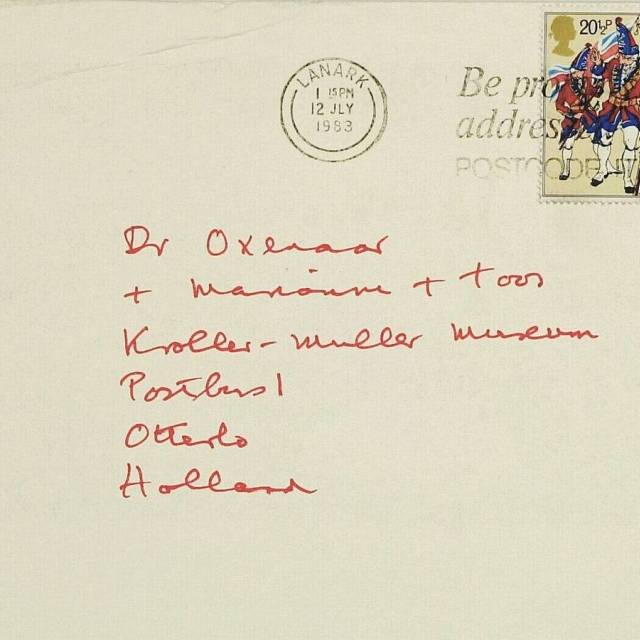 20½P
LANARK
1 15PM
12 JLY
1983
Be pro
addres
POSTCODE IT
Dr Oxenaar
+ Marianne + Toos
Kroller-Muller Museum
Postbus 1
Otterlo
Holland